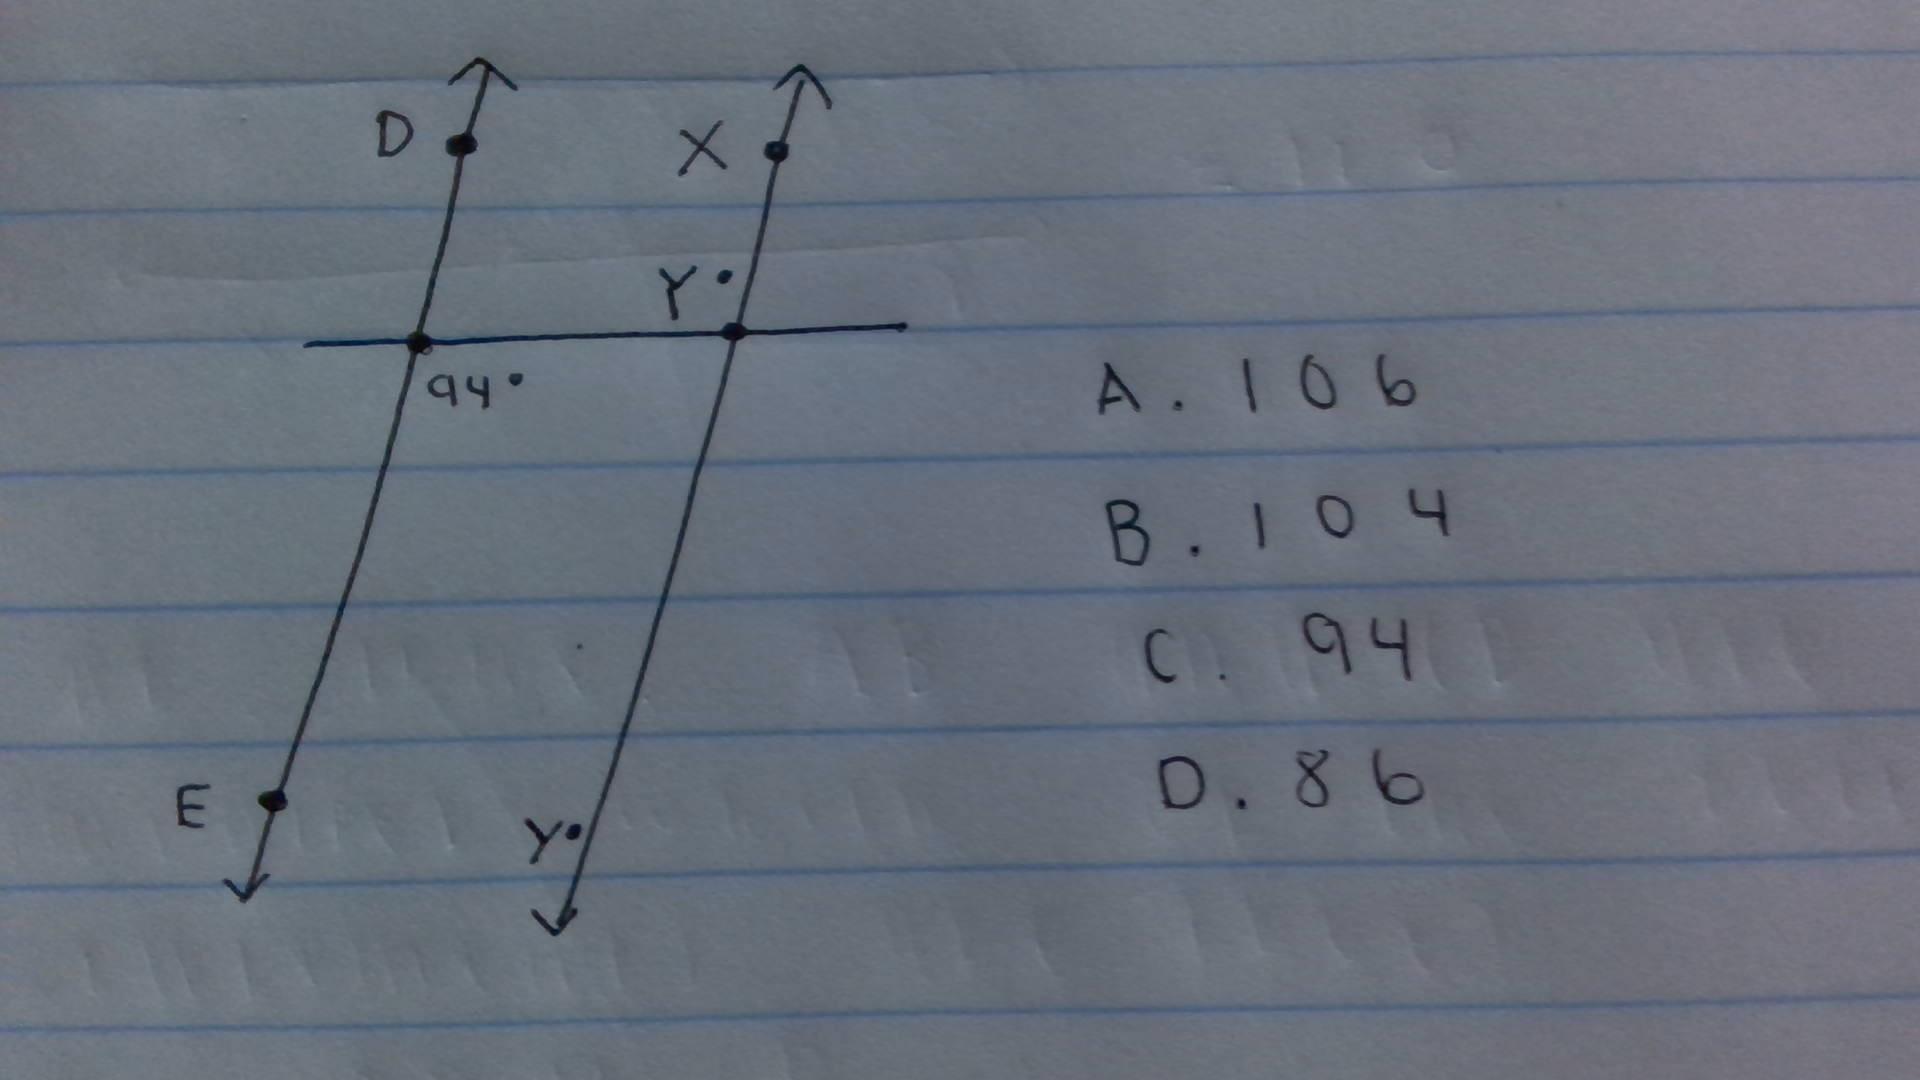 D X
Y°
94°
A. 106
B. 104
C. 94
D. 86
E
Y•